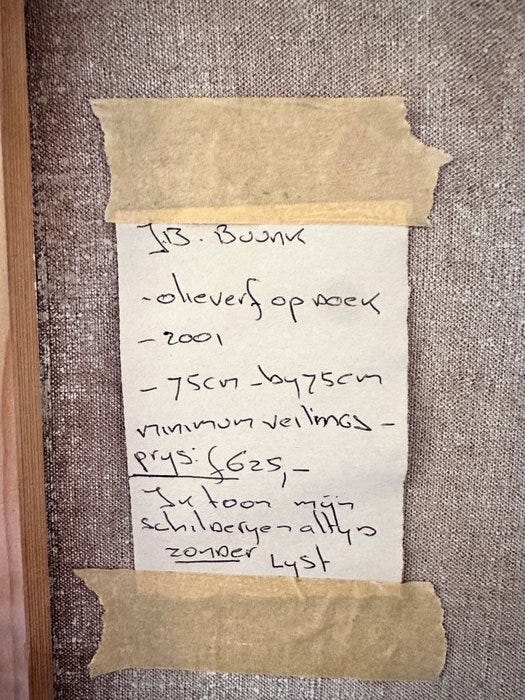 J.B. Buunk
- olieverf op doek
- 2001
- 75cm - by 75cm
minimum veilings -
prys: ƒ625,-
Ik toon mijn
schilderyen altyd
zonder Lyst